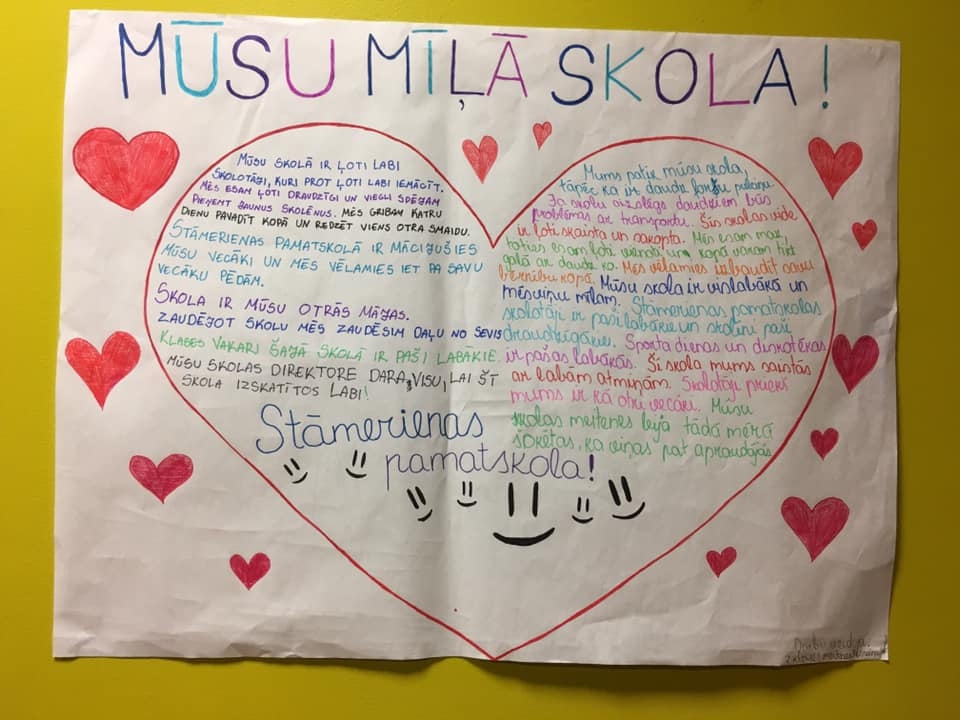 MŪSU MĪĻĀ SKOLA!
MŪSU SKOLĀ IR ĻOTI LABI
SKOLOTĀJI, KURI PROT ĻOTI LABI IEMĀCĪT.
MĒS ESAM ĻOTI DRAUDZĪGI UN VIEGLI SPĒJAM
PIEŅEMT JAUNUS SKOLĒNUS. MĒS GRIBAM KATRU
DIENU PAVADĪT KOPĀ UN REDZĒT VIENS OTRA SMAIDU.
STĀMERIENAS PAMATSKOLĀ IR MĀCĪJUŠIES
MŪSU VECĀKI UN MĒS VĒLAMIES IET PA SAVU
VECĀKU PĒDĀM.
SKOLA IR MŪSU OTRĀS MĀJAS.
ZAUDĒJOT SKOLU MĒS ZAUDĒSIM DAĻU NO SEVIS
KLASES VAKARI ŠAJĀ SKOLĀ IR PAŠI LABĀKIE.
MŪSU SKOLAS DIREKTORE DARA, VISU, LAI ŠĪ
SKOLA IZSKATĪTOS LABI!
Mums patīk mūsu skola,
tāpēc ka ir daudz foršu puišu.
Ja skolu aizslēgs daudziem būs
problēmas ar transportu. Šīs skolas vide
ir ļoti skaista un sakopta. Mēs esam maz,
toties esam ļoti vienoti un kopā varam tikt
galā ar daudz ko. Mēs vēlamies izbaudīt savu
bērnību kopā. Mūsu skola ir vislabākā un
mēs viņu mīlam. Stāmerienas pamatskolas
skolotāji ir paši labākie un skolēni paši
draudzīgākie. Sporta dienas un diskotēkas
ir pašas labākās. Šī skola mums saistās
ar labām atmiņām. Skolotāji priekš
mums ir kā otri vecāki. Mūsu
skolas meitenes bija tādā mērā
šokētas, ka viņas pat apraudājās
Stāmerienas
pamatskola!